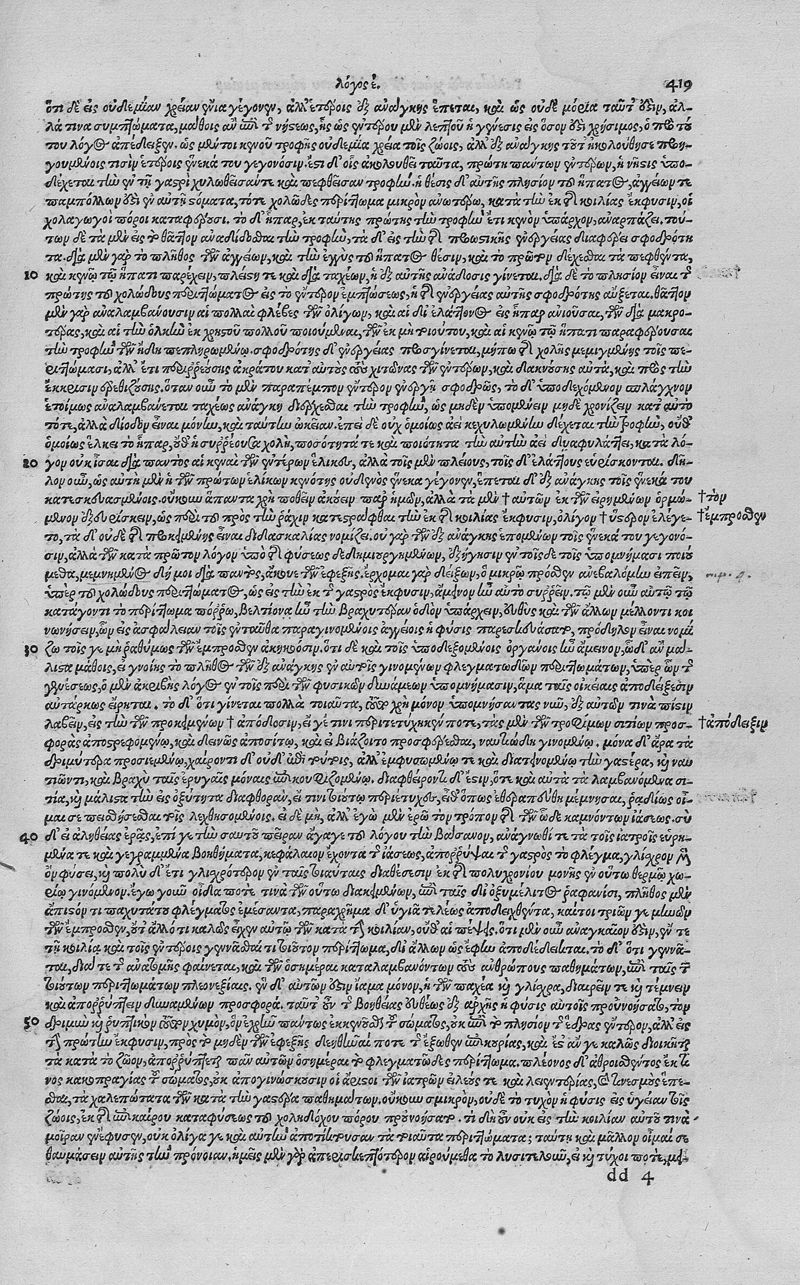 λόγος ε. 419
ὅτι δὲ εἰς οὐδεμίαν χρείαν ἔνια γέγονεν, ἀλλ' ἑτέροις ἐξ ἀνάγκης ἕπεται, καὶ ὡς οὐδὲ μόρια ταῦτ' ἐστὶν, ἀλ-
λά τινα συμπτώματα, μάθοις ἂν ἐπὶ τ νήστεως, ἧς ὡς ἐντέρου μὲν λεπτοῦ ἡ γένεσις εἰς ὅσον ἐστὶ χρήσιμος, ὁ πρὸ τού
του λόγος ἀπέδειξεν. ὡς μέντοι κενοῦ τροφῆς οὐδεμία χρεία τοῖς ζώοις, ἀλλ' ἐξ ἀνάγκης τοῦτ' ἠκολούθησε προη-
γουμένοις τισὶν ἑτέροις ἕνεκά του γεγονόσιν. ἔστι δ' οἷς ἀκολουθεῖ ταῦτα, πρώτη πάντων ἐντέρων, ἡ νῆστις ὑπο-
δέχεται τὴν ἐν τῇ γαστρὶ χυλωθεῖσάν τε καὶ πεφθεῖσαν τροφήν. ἡ θέσις δ' αὐτῆς πλησίον τοῦ ἥπατος, ἀγγείων τε
παμπόλλων ἐστὶν ἐν αὐτῇ στόματα, τό τε χολῶδες περίττωμα μικρὸν ἀνωτέρω, κατὰ τὴν ἐκ τῆς κοιλίας ἔκφυσιν, οἱ
χοληγωγοὶ πόροι καταφέρουσι. τὸ δ' ἧπαρ, ἐκ ταύτης πρώτης τὴν τροφὴν ἔτι κενὸν ὑπάρχον, ἀναρπάζει. τού-
των δὲ τὰ μὲν εἰς τὸ θᾶττον ἀναδίδοσθαι τὴν τροφὴν, τὰ δ' εἰς τὴν τῆς προωστικῆς ἐνεργείας διαφέρει σφοδρότη
τα. διὰ μὲν γὰρ τὸ πλῆθος τῶν ἀγγείων, καὶ τὴν ἐγγὺς τοῦ ἥπατος θέσιν, καὶ τὸ πρώτην δέχεσθαι τὰ πεφθέντα,
10 καὶ κενῷ τῷ ἥπατι παρέχειν, πλείστη τε καὶ διὰ ταχέων, ἡ ἐξ αὐτῆς ἀνάδοσις γίνεται. διὰ δὲ τὸ πλησίον εἶναι τ
πρώτης τοῦ χολώδους περιττώματος εἰς τὸ ἔντερον ἐμπτώσεως, ἡ τῆς ἐνεργείας αὐτῆς σφοδρότης αὔξεται. θᾶττον
μὲν γὰρ ἀναλαμβάνουσιν αἱ πολλαὶ φλέβες τῶν ὀλίγων, καὶ αἱ δι' ἐλάττονος εἰς ἧπαρ ἀνιοῦσαι, τῶν διὰ μακρο-
τέρας, καὶ αἱ τὴν ὁλκὴν ἐκ χρηστοῦ πολλοῦ ποιούμεναι, τῶν ἐκ μὴ τοιούτου, καὶ αἱ κενῷ τῷ ἥπατι παραφέρουσαι
τὴν τροφὴν τῶν ἤδη πεπληρωμένῳ. σφοδρότης δ' ἐνεργείας προσγίνεται, μήπω τῆς χολῆς μεμιγμένης τοῖς πε-
ριττώμασι, ἀλλ' ἔτι περιῤῥεούσης ἀκράτου κατ' αὐτοὺς τοὺς χιτῶνας τῶν ἐντέρων, καὶ δακνούσης αὐτὰ, καὶ πρὸς τὴν
ἔκκρισιν ἐρεθιζούσης. ὅταν οὖν τὸ μὲν παραπέμπον ἔντερον ἐνεργῇ σφοδρῶς, τὸ δ' ὑποδεχόμενον σπλάγχνον
ἑτοίμως ἀναλαμβάνεται ταχέως ἀνάγκη διέρχεσθαι τὴν τροφὴν, ὡς μηδὲν ὑπομένειν μηδὲ χρονίζειν κατ' αὐτὸ
τότε, ἀλλὰ δίοδον εἶναι μόνην, καὶ ταύτην ὠκεῖαν. ἐπεὶ δὲ οὐχ ὁμοίως ἀεὶ κεχυλωμένην δέχεται τὴν τροφὴν, οὐδ'
ὁμοίως ἕλκει τὸ ἧπαρ, οὔθ' ἡ συῤῥέουσα χολὴ, ποσότητά τε καὶ ποιότητα τὴν αὐτὴν ἀεὶ διαφυλάττει, κατὰ λό-
20 γον οὐκ ἴσαι διὰ παντὸς αἱ κεναὶ τῶν ἐντέρων ἕλικες, ἀλλὰ τοῖς μὲν πλείους, τοῖς δ' ἐλάττους εὑρίσκονται. δῆ-
λον οὖν, ὡς αὐτὴ μὲν ἡ τῶν πρώτων ἑλίκων κενότης οὐδενὸς ἕνεκα γέγονεν, ἕπεται δ' ἐξ ἀνάγκης τοῖς ἕνεκά του
κατεσκευασμένοις. οὔκουν ἅπαντα χρὴ ποθεῖν ἀκούειν παρ' ἡμῶν, ἀλλὰ τὰ μὲν † αὐτῶν ἐκ τῶν εἰρημένων ὁρμώ- †τὸν
μενον ἐξευρίσκειν, ὡς περὶ τοῦ πρὸς τὴν ῥάχιν κατεστράφθαι τὴν ἐκ τῆς κοιλίας ἔκφυσιν, ὀλίγον † ὕστερον ἐλέγε- †ἔμπροσθεν
το, τὰ δ' οὐδὲ τῆς προκειμένης εἶναι διδασκαλίας νομίζει. οὐ γὰρ τῶν ἐξ ἀνάγκης ἑπομένων τοῖς ἕνεκά του γεγονό-
σιν, ἀλλὰ τῶν κατὰ πρῶτον λόγον ὑπὸ τῆς φύσεως δεδημιουργημένων, ἐξήγησιν ἐν τοῖσδε τοῖς ὑπομνήμασι ποιού
μεθα, μεμνημένος δή μοι διὰ παντὸς, ἄκουε τῶν ἐφεξῆς. ἔρχομαι γὰρ δείξων, ὃ μικρῷ πρόσθεν ἀνεβαλόμην εἰπεῖν,
ὑπὲρ τοῦ χολώδους περιττώματος, ὡς εἰς τὴν ἐκ τ γαστρὸς ἔκφυσιν, ἄμεινον ἦν αὐτὸ συῤῥεῖν. τῷ μὲν οὖν αὐτὴν τῷ
κατάγοντι τὸ περίττωμα πόῤῥω, βελτίονα ἦν τὴν βραχυτέραν ὁδὸν ὑπάρχειν, εὐθὺς καὶ τῶν ἄλλων μέλλοντι κοι
νωνήσειν, ὧν εἰς ἀσφάλειαν τοῖς ἐνταῦθα παραγινομένοις ἀγγείοις ἡ φύσις παρεσκεύασεν, πρόδηλον εἶναι νομί
30 ζω τοῖς γε μὴ ῥᾳθύμως τῶν ἔμπροσθεν ἀκηκοόσιν. ὅτι δὲ καὶ τοῖς ὑποδεξομένοις ὀργάνοις ἦν ἄμεινον, ὧδ' ἂν μά-
λιστα μάθοις, εἰ γνοίης τὸ πλῆθος τῶν ἐξ ἀνάγκης ἐν αὐτοῖς γινομένων φλεγματωδῶν περιττωμάτων, ὑπὲρ ὧν τ
γενέσεως, ὁ μὲν ἀκριβὴς λόγος ἐν τοῖς περὶ τῶν φυσικῶν δυνάμεων ὑπομνήμασιν, ἅμα ταῖς οἰκείαις ἀποδείξεσιν
αὐτάρκως εἴρηται. τὸ δ' ὅτι γίνεται πολλὰ τοιαῦτα, χρὴ μόνον ὑπομνήσαντας νῦν, ἐξ αὐτῶν τινὰ πίστιν
λαβεῖν, εἰς τὴν τῶν προκειμένων † ἀπόδοσιν, εἴ γέ τινι περιτετύχηκέν ποτε, τὰς μὲν τῶν τροφίμων σιτίων προσ- †ἀπόδειξιν
φορὰς ἀποστρεφομένῳ, καὶ δεινῶς ἀποσίτῳ, καὶ εἰ βιάζοιτο προσφέρεσθαι, ναυτιώδη γινομένῳ. μόνα δ' ἄρα τὰ
δριμύτερα προσιεμένῳ, χαίροντι δ' οὐδ' ἐπὶ τούτοις, ἀλλ' ἐμφυσωμένῳ τε καὶ διατεινομένῳ τὴν γαστέρα, καὶ ναυ
τιῶντι, καὶ βραχὺ ταῖς ἐρυγαῖς μόναις ἐπικουφιζομένῳ. διαφθείρονται δ' ἔστιν, ὅτε καὶ αὐτὰ τὰ λαμβανόμενα σι-
τία, καὶ μάλιστα τὴν εἰς ὀξύτητα διαφθορὰν, εἴ τινι τοιούτῳ περιέτυχες, εἶθ' ὅπως ἐθεραπεύθη μέμνησαι, ῥᾳδίως οἶ-
μαί σε πεισθήσεσθαι τοῖς λεχθησομένοις. εἰ δὲ μὴ, ἀλλ' ἐγὼ μὲν ἐρῶ τὸν τρόπον τῆς τῶν ὧδε καμνόντων ἰάσεως. σὺ
40 δ' εἰ ἀληθείας ἐρᾷς, ἐπί γε τὴν σαυτοῦ πεῖραν ἄγαγε τοῦ λόγου τὴν βάσανον, ἀνάγνωθί τε τὰ τοῖς ἰατροῖς εὑρη-
μένα τε καὶ γεγραμμένα βοηθήματα, κεφάλαιον ἔχοντα τ ἰάσεως, ἀποῤῥύψαι τ γαστρὸς τὸ φλέγμα, γλίσχρον μὲν
ὂν φύσει, καὶ πολὺ δ' ἔτι γλισχρότερον ἐν ταῖς τοιαύταις διαθέσεσιν ἐκ τῆς πολυχρονίου μονῆς ἐν οὕτω θερμῷ χω-
ρίῳ γινόμενον. ἔγωγ' οὖν οἶδά ποτέ τινα τῶν οὕτω διακειμένων, ἐπὶ ταῖς δι' ὀξυμέλιτος ῥαφανῖσι, πλῆθος μὲν
ἄπιστόν τι παχυτάτου φλέγματος ἐμέσαντα, παραχρῆμα δ' ὑγιᾶ τελέως ἀποδειχθέντα, καίτοι τριῶν γε μηνῶν
τῶν ἔμπροσθεν, οὔτ' ἄλλό τι καλῶς εἶχεν αὐτῷ τῶν κατὰ τὴν κοιλίαν, οὔθ' αἱ πέψεις. ὅτι μὲν οὖν ἀναγκαῖόν ἐστιν, ἔν τε
τῇ κοιλίᾳ καὶ τοῖς ἐντέροις γεννᾶσθαί τι τοιοῦτον περίττωμα, δι' ἄλλων ὡς ἔφην ἀποδέδεικται. τὸ δ' ὅτι γεννᾶ-
ται, διά τε τ ἀνατομῆς φαίνεται, καὶ τῶν ὁσημέραι καταλαμβανόντων τοὺς ἀνθρώπους παθημάτων, ἐπὶ ταῖς τ
τοιούτων περιττωμάτων πλεονεξίαις. ἓν δ' αὐτῶν ἐστιν ἴαμα μόνον, ἡ τῶν παχέα καὶ γλίσχρα, διαιρεῖν τε καὶ τέμνειν
καὶ ἀποῤῥύπτειν δυναμένων προσφορά. ταῦτ' οὖν τ βοηθείας εὐθέως ἐξ ἀρχῆς ἡ φύσις αὐτοῖς προὐνοήσατο, τὸν
50 δριμὺν καὶ ῥυπτικὸν χυμὸν, ὃν ἐχρῆν πάντως ἐκκενοῦσθαι τοῦ σώματος, οὐκ ἐπὶ τὸ πλησίον τ ἕδρας ἔντερον, ἀλλ' εἰς
τὴν πρώτην ἔκφυσιν, πρὸς τὸ μηδὲν τῶν ἐφεξῆς δεηθῆναί ποτε τ ἔξωθεν ἐπικουρίας, καὶ ἔστ' ἄν γε καλῶς διοικῆται
τὰ κατὰ τὸ ζῶον, ἀποῤῥύπτεται πᾶν αὐτῶν ὁσημέραι τὸ φλεγματῶδες περίττωμα. πλέονος δ' ἀθροισθέντος ἔκ τι-
νος κακοπραγίας τοῦ σώματος, οὐκ ἀπογινώσκουσιν οἱ ἄριστοι τῶν ἰατρῶν εἰλεούς τε καὶ λειεντερίας, καὶ τεινεσμοὺς ἕπε-
σθαι, τὰ χαλεπώτατα τῶν κατὰ τὴν γαστέρα παθημάτων. οὔκουν σμικρὸν, οὐδὲ τὸ τυχὸν ἡ φύσις εἰς ὑγείαν τοῖς
ζώοις, ἐκ τῆς ἐπικαίρου καταφύσεως τοῦ χοληδόχου πόρου προὐνοήσατο. τί δὴ οὖν οὐκ εἰς τὴν κοιλίαν αὐτοῦ τινὰ
μοῖραν ἐνέφυσεν, οὐκ ὀλίγα γε καὶ αὐτὴν ἀποτίκτουσαν τὰ τοιαῦτα περιττώματα; ταύτῃ καὶ μᾶλλον οἶμαί σε
θαυμάσειν αὐτῆς τὴν πρόνοιαν. ἡμεῖς μὲν γὰρ ἀπερισκεπτότερον αἱρούμεθα τὸ λυσιτελοῦν, εἰ καὶ τύχοι ποτὲ, μεί-
dd 4